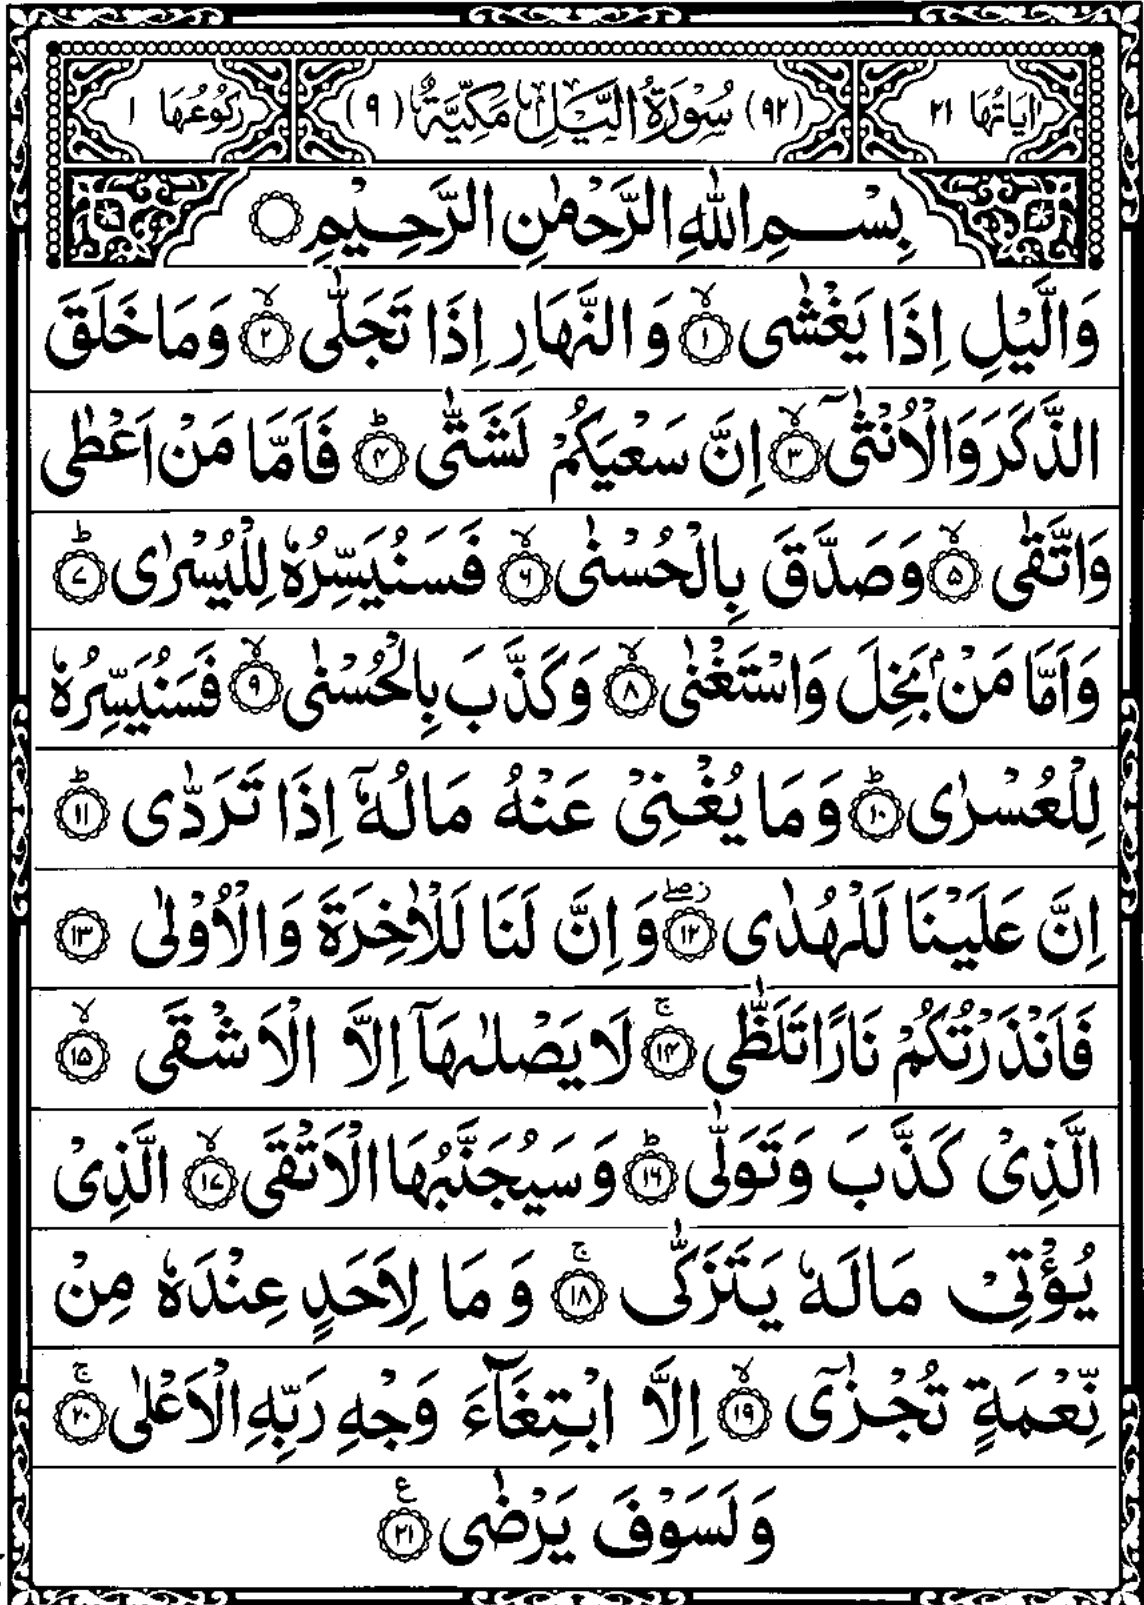 اٰيَاتُهَا ٢١ (٩٢) سُوْرَةُ الَّيْلِ مَكِّيَّةٌ (٩) رُكُوْعُهَا ١
بِسْمِ اللّٰهِ الرَّحْمٰنِ الرَّحِيْمِ
وَالَّيْلِ اِذَا يَغْشٰى ۙ‏﴿۱﴾ وَ النَّهَارِ اِذَا تَجَلّٰى ۙ‏﴿۲﴾ وَمَا خَلَقَ
الذَّكَرَ وَالْاُنْثٰٓى ۙ‏﴿۳﴾ اِنَّ سَعْيَكُمْ لَشَتّٰى ؕ‏﴿۴﴾ فَاَمَّا مَنْ اَعْطٰى
وَاتَّقٰى ۙ‏﴿۵﴾ وَصَدَّقَ بِالْحُسْنٰى ۙ‏﴿۶﴾ فَسَنُيَسِّرُهٗ لِلْيُسْرٰى ؕ‏﴿۷﴾
وَاَمَّا مَنْۢ بَخِلَ وَاسْتَغْنٰى ۙ‏﴿۸﴾ وَكَذَّبَ بِالْحُسْنٰى ۙ‏﴿۹﴾ فَسَنُيَسِّرُهٗ
لِلْعُسْرٰى ؕ‏﴿۱۰﴾ وَمَا يُغْنِىْ عَنْهُ مَالُهٗۤ اِذَا تَرَدّٰى ؕ‏﴿۱۱﴾
اِنَّ عَلَيْنَا لَلْهُدٰى ۖ‏﴿۱۲﴾ وَاِنَّ لَنَا لَلْاٰخِرَةَ وَالْاُوْلٰى‏﴿۱۳﴾
فَاَنْذَرْتُكُمْ نَارًا تَلَظّٰى ۚ‏﴿۱۴﴾ لَا يَصْلٰٮهَاۤ اِلَّا الْاَشْقَى ۙ‏﴿۱۵﴾
الَّذِىْ كَذَّبَ وَتَوَلّٰى ؕ‏﴿۱۶﴾ وَسَيُجَنَّبُهَا الْاَتْقَى ۙ‏﴿۱۷﴾ الَّذِىْ
يُؤْتِىْ مَالَهٗ يَتَزَكّٰى ۚ‏﴿۱۸﴾ وَمَا لِاَحَدٍ عِنْدَهٗ مِنْ
نِّعْمَةٍ تُجْزٰٓى ۙ‏﴿۱۹﴾ اِلَّا ابْتِغَآءَ وَجْهِ رَبِّهِ الْاَعْلٰى ۚ‏﴿۲۰﴾
وَلَسَوْفَ يَرْضٰى ع‏﴿۲۱﴾